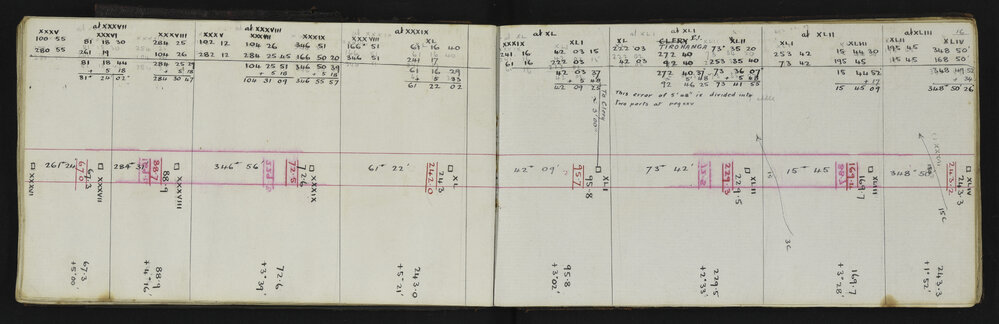 at XXXVII
XXXV XXXVI
100 55 81 18 30 284 25
280 55 261 19 104 26
81 18 44 284 25 29
+ 5 18 + 5 18
81° 24 02" 284 30 47
at XXXVIII
XXXVII XXXIX
102 12 104 26 346 51
282 12 284 25 45 166 50 20
104 25 51 346 50 39
+ 5 18 + 5 18
104 31 09 346 55 57
at XXXIX
XXXVIII XL
166° 51 61 16 40
346 51 241 17
61 16 29
+ 5 33
61 22 02
at XL
XLI
241 16 42 03 15
61 16 222 03
42 03 37
+ 5 48
42 09 25
To Clery
+ 3'00"
at XLI
XL CLERY XLII
222 03 TIROHANGA 73° 35 20
42 03 272 40 253 35 40
92 40
272 40 37 73 36 07
5 48 + 5 48
92 46 25 73 41 55
This error of 5'48" is divided into
two parts at peg XXV
at XLII
XLI XLIII
253 42 15 44 30
73 42 195 45
15 44 52
+ 17
15 45 09
at XLIII 16
XLII XLIV
195 45 348 50'
15 45 168 50'
348 49 52
+ 34
348° 50' 26
□ XXXVI
261° 24
67.3
67.0
284° 31'
88.9
88.7
□ XXXVIII
346° 56'
72.6
72.5
□ XXXIX
61° 22'
243.0
□ XL
42° 09'
95.8
95.7
□ XLI
73° 42'
229.5
229.3
□ XLII
15° 45
169.7
□ XLIII
348° 50'
243.3
243.2
□ XLIV
3C
15C
67.3
+5'00"
88.9
+4'16"
72.6
+3'39"
243.0
+5'21"
95.8
+3'02"
229.5
+2'33"
169.7
+3'28"
243.3
+1'52"